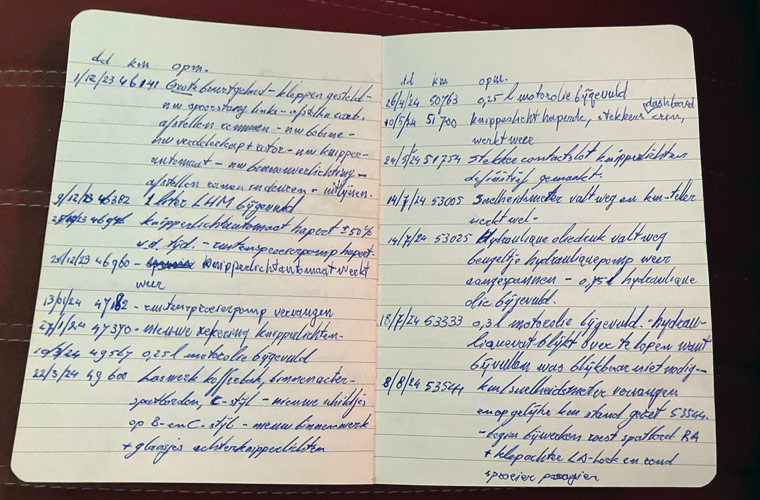 dd km opm.
1/12/23 46141 Grote beurt gehad - kleppen gesteld -
nw spoorstang links - afstellen
afstellen remmen - nw bobine -
nw verdeelkap + rotor - nw knipper-
automaat - nw binnenverlichting -
afstellen ramen en deuren - uitlijnen.
9/12/23 46382 1 liter LHM bijgevuld
46946 knipperlichtautomaat hapert ± 50%
v.d. tijd. - ruitensproeierpomp hapert.
20/12/23 46960 - knipperlichtautomaat werkt
weer
13/01/24 47182 - ruitensproeierpomp vervangen
27/1/24 47370 - nieuwe zekering knipperlichten.
49567 0,25 l motorolie bijgevuld
22/3/24 49600 laswerk kofferbak, binnenachter-
spatborden, C-stijl - nieuwe schildjes
op B- en C-stijl - nieuw binnenwerk
+ glaasjes achterknipperlichten
dd km opm.
26/4/24 50763 0,25 l motorolie bijgevuld
10/5/24 51700 knipperlicht haperde, stekkers dashboard
werkt weer
24/5/24 51754 stekker contactslot knipperlichten
definitief gemaakt.
14/7/24 53005 Snelheidsmeter valt weg en km-teller
werkt wel -
14/7/24 53025 Hydraulique oliedruk valt weg
beugeltje hydrauliquepomp weer
aangespannen - 0,75 l hydraulique
olie bijgevuld.
18/7/24 53333 0,3 l motorolie bijgevuld. - hydrau-
liquevat blijkt over te lopen want
bijvullen was blijkbaar niet nodig -
8/8/24 53544 km/snelheidsmeter vervangen
en op gelijke km stand gezet 53544.
- begin bijwerken roest spatbord RA
+ klep achter LA-hoek en rond
sproeier